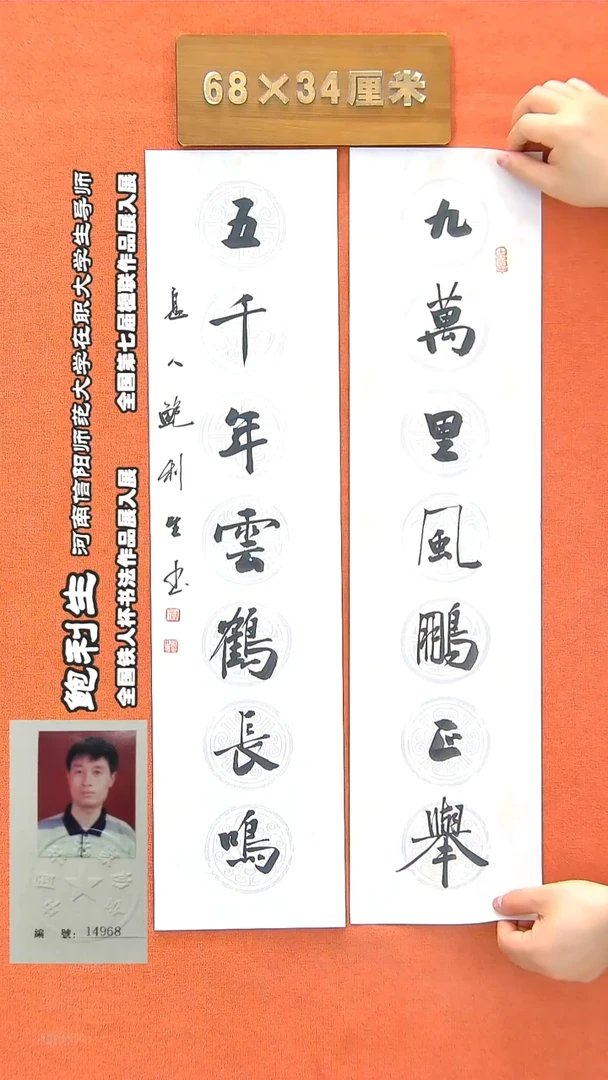 68×34厘米
九萬里風鵬正舉
五千年雲鶴長鳴
息人鲍利生书
鲍利生 河南信阳师范大学在职大学生导师
全国第七届楹联作品展入展
全国铁人杯书法作品展入展
編 號：14968